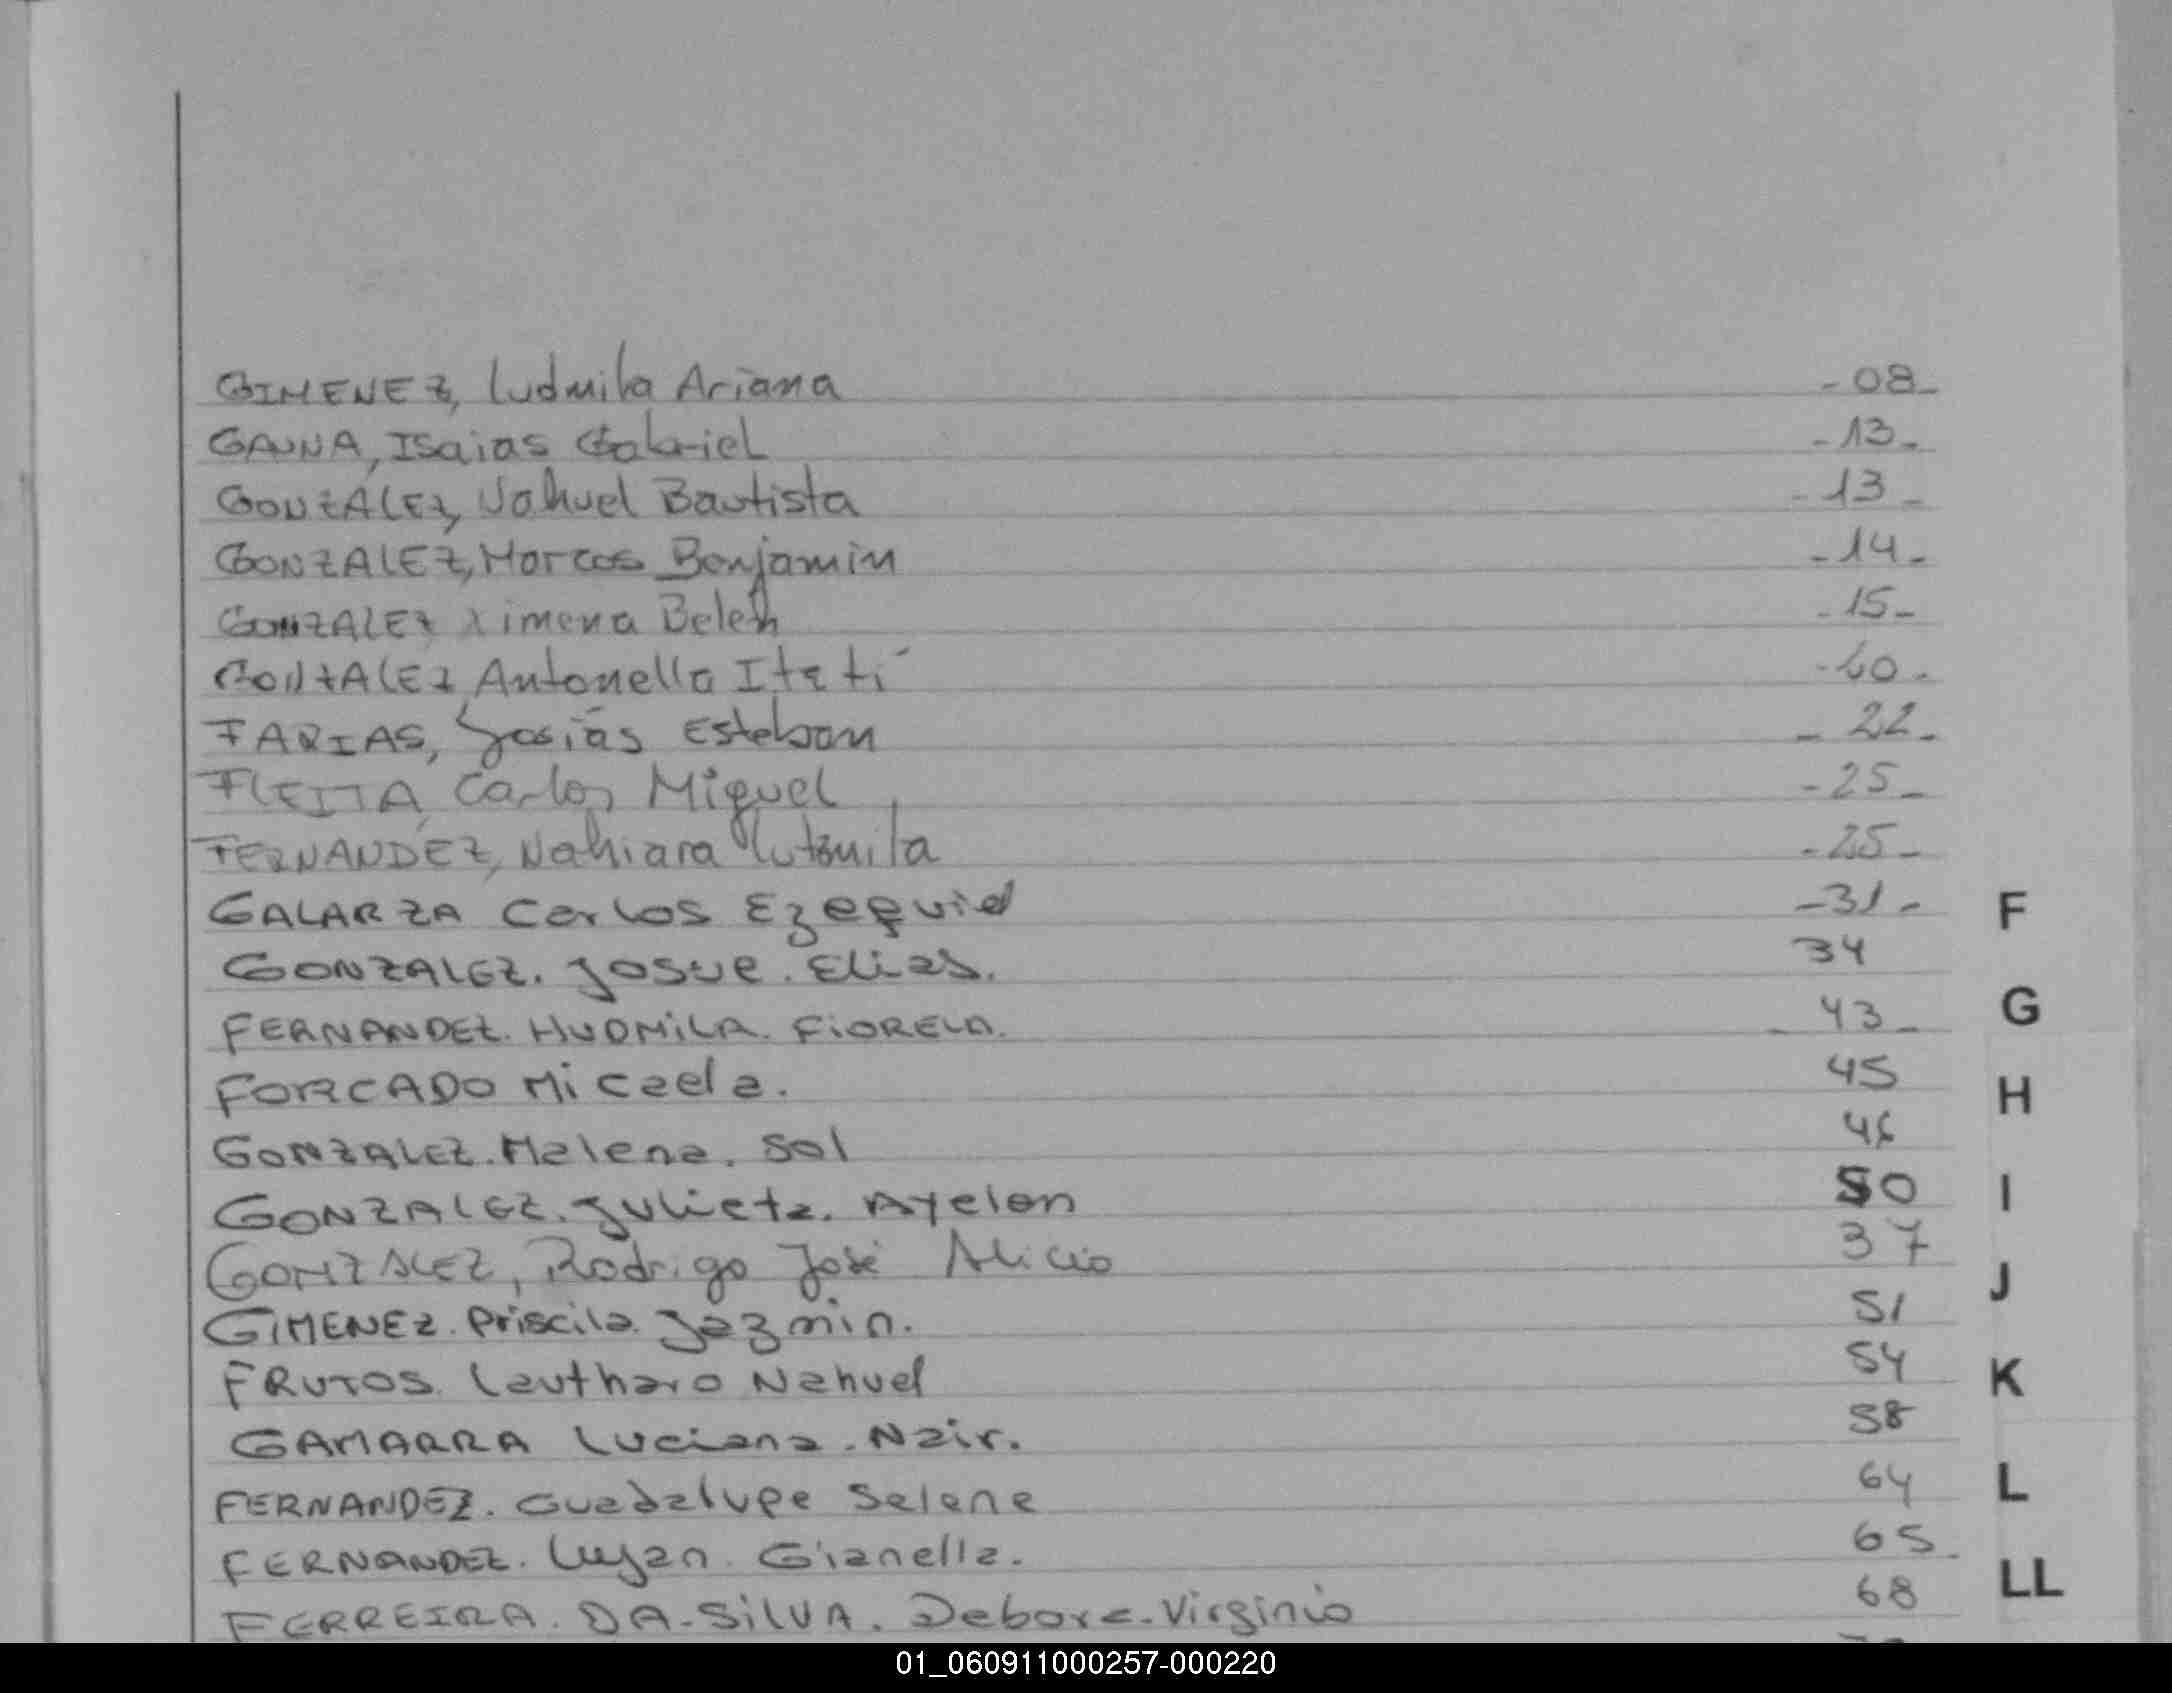 GIMENEZ, Ludmila Ariana -08-
GAUNA, Isaias Gabriel -13-
GONZÁLEZ, Nahuel Bautista -13-
GONZALEZ, Marcos Benjamin -14-
GONZALEZ Ximena Belen -15-
GONZALEZ Antonella Itatí
FARIAS, Josías Esteban -22-
FLEITA, Carlos Miguel -25-
FERNANDEZ, Nahiara -25-
GALARZA Carlos Ezequiel -31-
GONZALEZ. Josue. Elias. 34
FERNANDEZ. HUDMILA. FIORELA. -43-
FORCADO Micaela. 45
GONZALEZ. Malena. Sol 46
GONZALEZ. Julieta. Ayelen 50
GONZALEZ, Rodrigo José 37
GIMENEZ. Priscila. Jazmin. 51
FRUTOS. Lautharo Nahuel 54
GAMARRA Luciana. Nair. 58
FERNANDEZ. Guadalupe Selene 64
FERNANDEZ. Lujan. Gianella. 65
FERREIRA. DA-SILVA. Debora-Virginia 68
F
G
H
I
J
K
L
LL
01_060911000257-000220